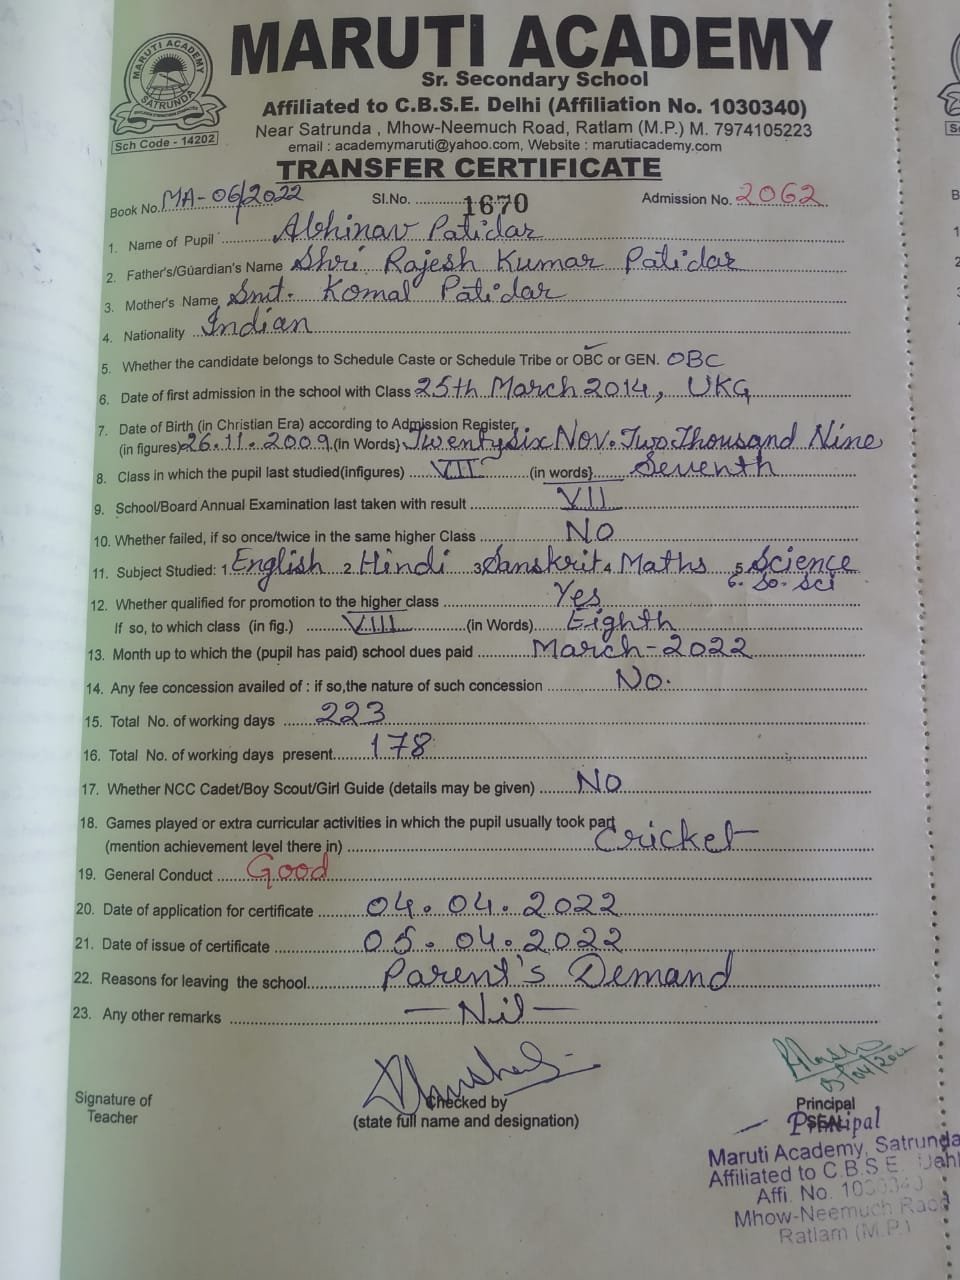 MARUTI ACADEMY
Sr. Secondary School
Affiliated to C.B.S.E. Delhi (Affiliation No. 1030340)
Near Satrunda , Mhow-Neemuch Road, Ratlam (M.P.) M. 7974105223
email : academymaruti@yahoo.com, Website : marutiacademy.com
MARUTI ACADEMY
SATRUNDA
Sch Code - 14202
TRANSFER CERTIFICATE
Book No. MA-06/2022 Sl.No. 1670 Admission No. 2062
1. Name of Pupil Abhinav Patidar
2. Father's/Guardian's Name Shri Rajesh Kumar Patidar
3. Mother's Name Smt. Komal Patidar
4. Nationality Indian
5. Whether the candidate belongs to Schedule Caste or Schedule Tribe or OBC or GEN. OBC
6. Date of first admission in the school with Class 25th March 2014, UKG
7. Date of Birth (in Christian Era) according to Admission Register
(in figures) 26.11.2009 (in Words) Twentysix Nov. Two Thousand Nine
8. Class in which the pupil last studied(infigures) VII (in words} Seventh
9. School/Board Annual Examination last taken with result VII
10. Whether failed, if so once/twice in the same higher Class NO
11. Subject Studied: 1. English 2. Hindi 3. Sanskrit 4. Maths 5. Science
6. So. Sci
12. Whether qualified for promotion to the higher class Yes
If so, to which class (in fig.) VIII (in Words) Eighth
13. Month up to which the (pupil has paid) school dues paid March-2022
14. Any fee concession availed of : if so,the nature of such concession No.
15. Total No. of working days 223
16. Total No. of working days present 178
17. Whether NCC Cadet/Boy Scout/Girl Guide (details may be given) NO
18. Games played or extra curricular activities in which the pupil usually took part
(mention achievement level there in) Cricket
19. General Conduct Good
20. Date of application for certificate 04.04.2022
21. Date of issue of certificate 05.04.2022
22. Reasons for leaving the school Parent's Demand
23. Any other remarks — Nil —
Signature of
Teacher
Checked by
(state full name and designation)
Principal
SEAL
Principal
Maruti Academy, Satrunda
Affiliated to C.B.S.E.
Affi. No. 1030340
Mhow-Neemuch Road
Ratlam (M.P.)